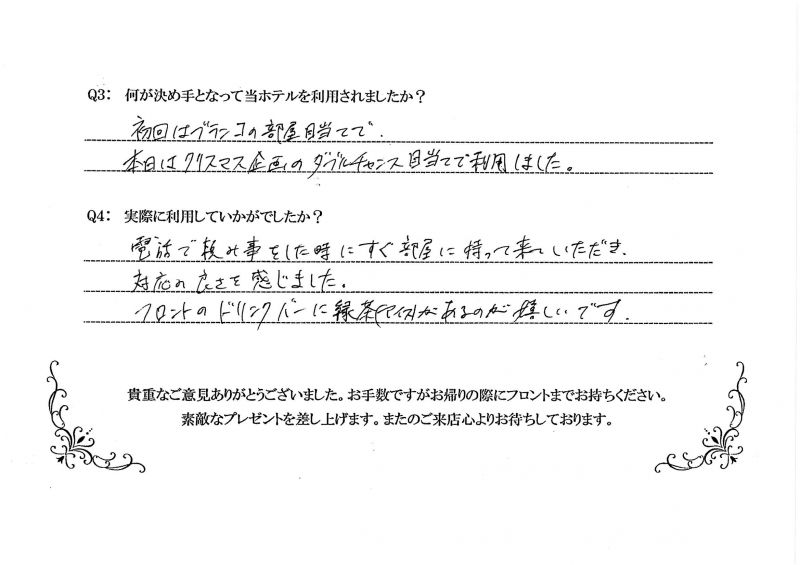 Q3： 何が決め手となって当ホテルを利用されましたか？
初回はブランコの部屋目当てで、
本日はクリスマス企画のダブルチャンス目当てで利用しました。
Q4： 実際に利用していかがでしたか？
電話で頼み事をした時にすぐ部屋に持って来ていただき、
対応の良さを感じました。
フロントのドリンクバーに緑茶(アイス)があるのが嬉しいです。
貴重なご意見ありがとうございました。お手数ですがお帰りの際にフロントまでお持ちください。
素敵なプレゼントを差し上げます。またのご来店心よりお待ちしております。